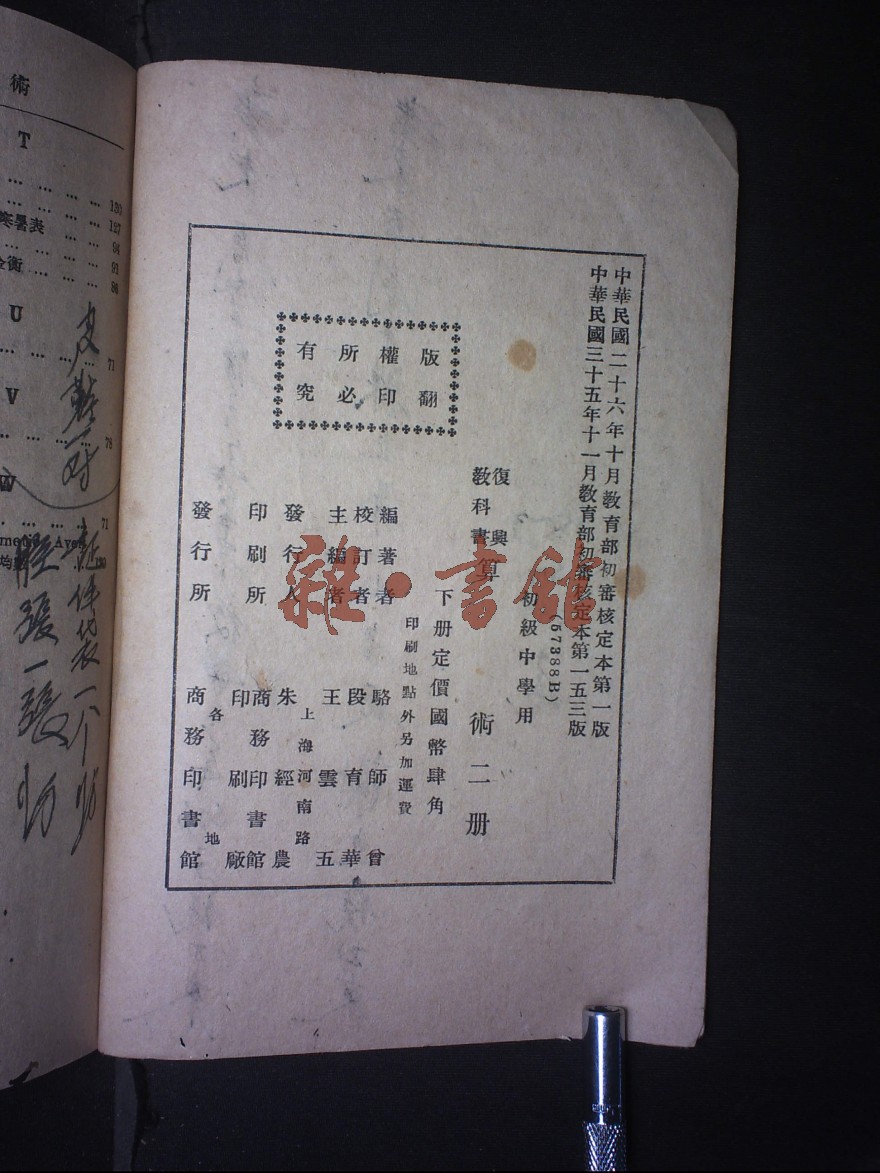 中華民國二十六年十月教育部初審核定本第一版
中華民國三十五年十一月教育部初審核定本第一五三版
(57388B)
初級中學用
復興
教科書
算術二册
下册定價國幣肆角
印刷地點外另加運費
版權所有
翻印必究
編著者 駱師曾
校訂者 段育華
主編者 王雲五
發行人 朱經農
上海河南路
印刷所 商務印書館
印刷廠
發行所 各地
商務印書館
雜·書館
術
T
130
127
寒暑表
94
91
金衡
86
U
71
V
78
W
71
130